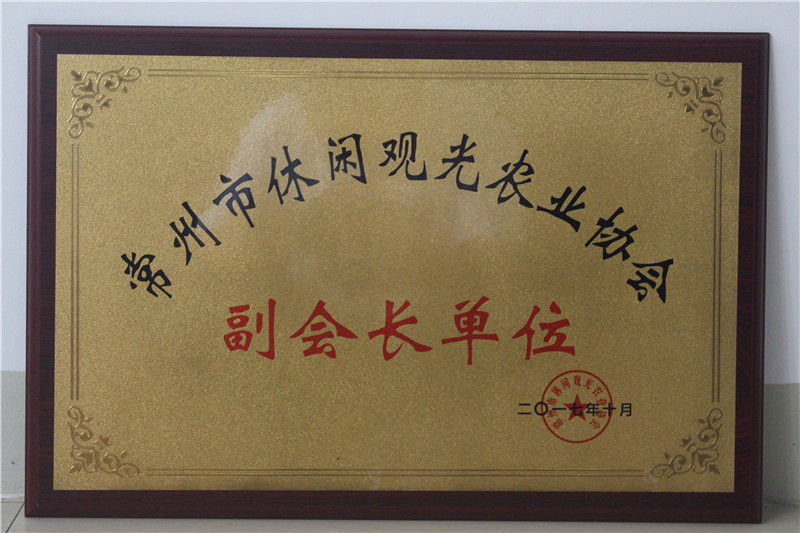 常州市休闲观光农业协会
副会长单位
二〇一七年十月
常州市休闲观光农业协会